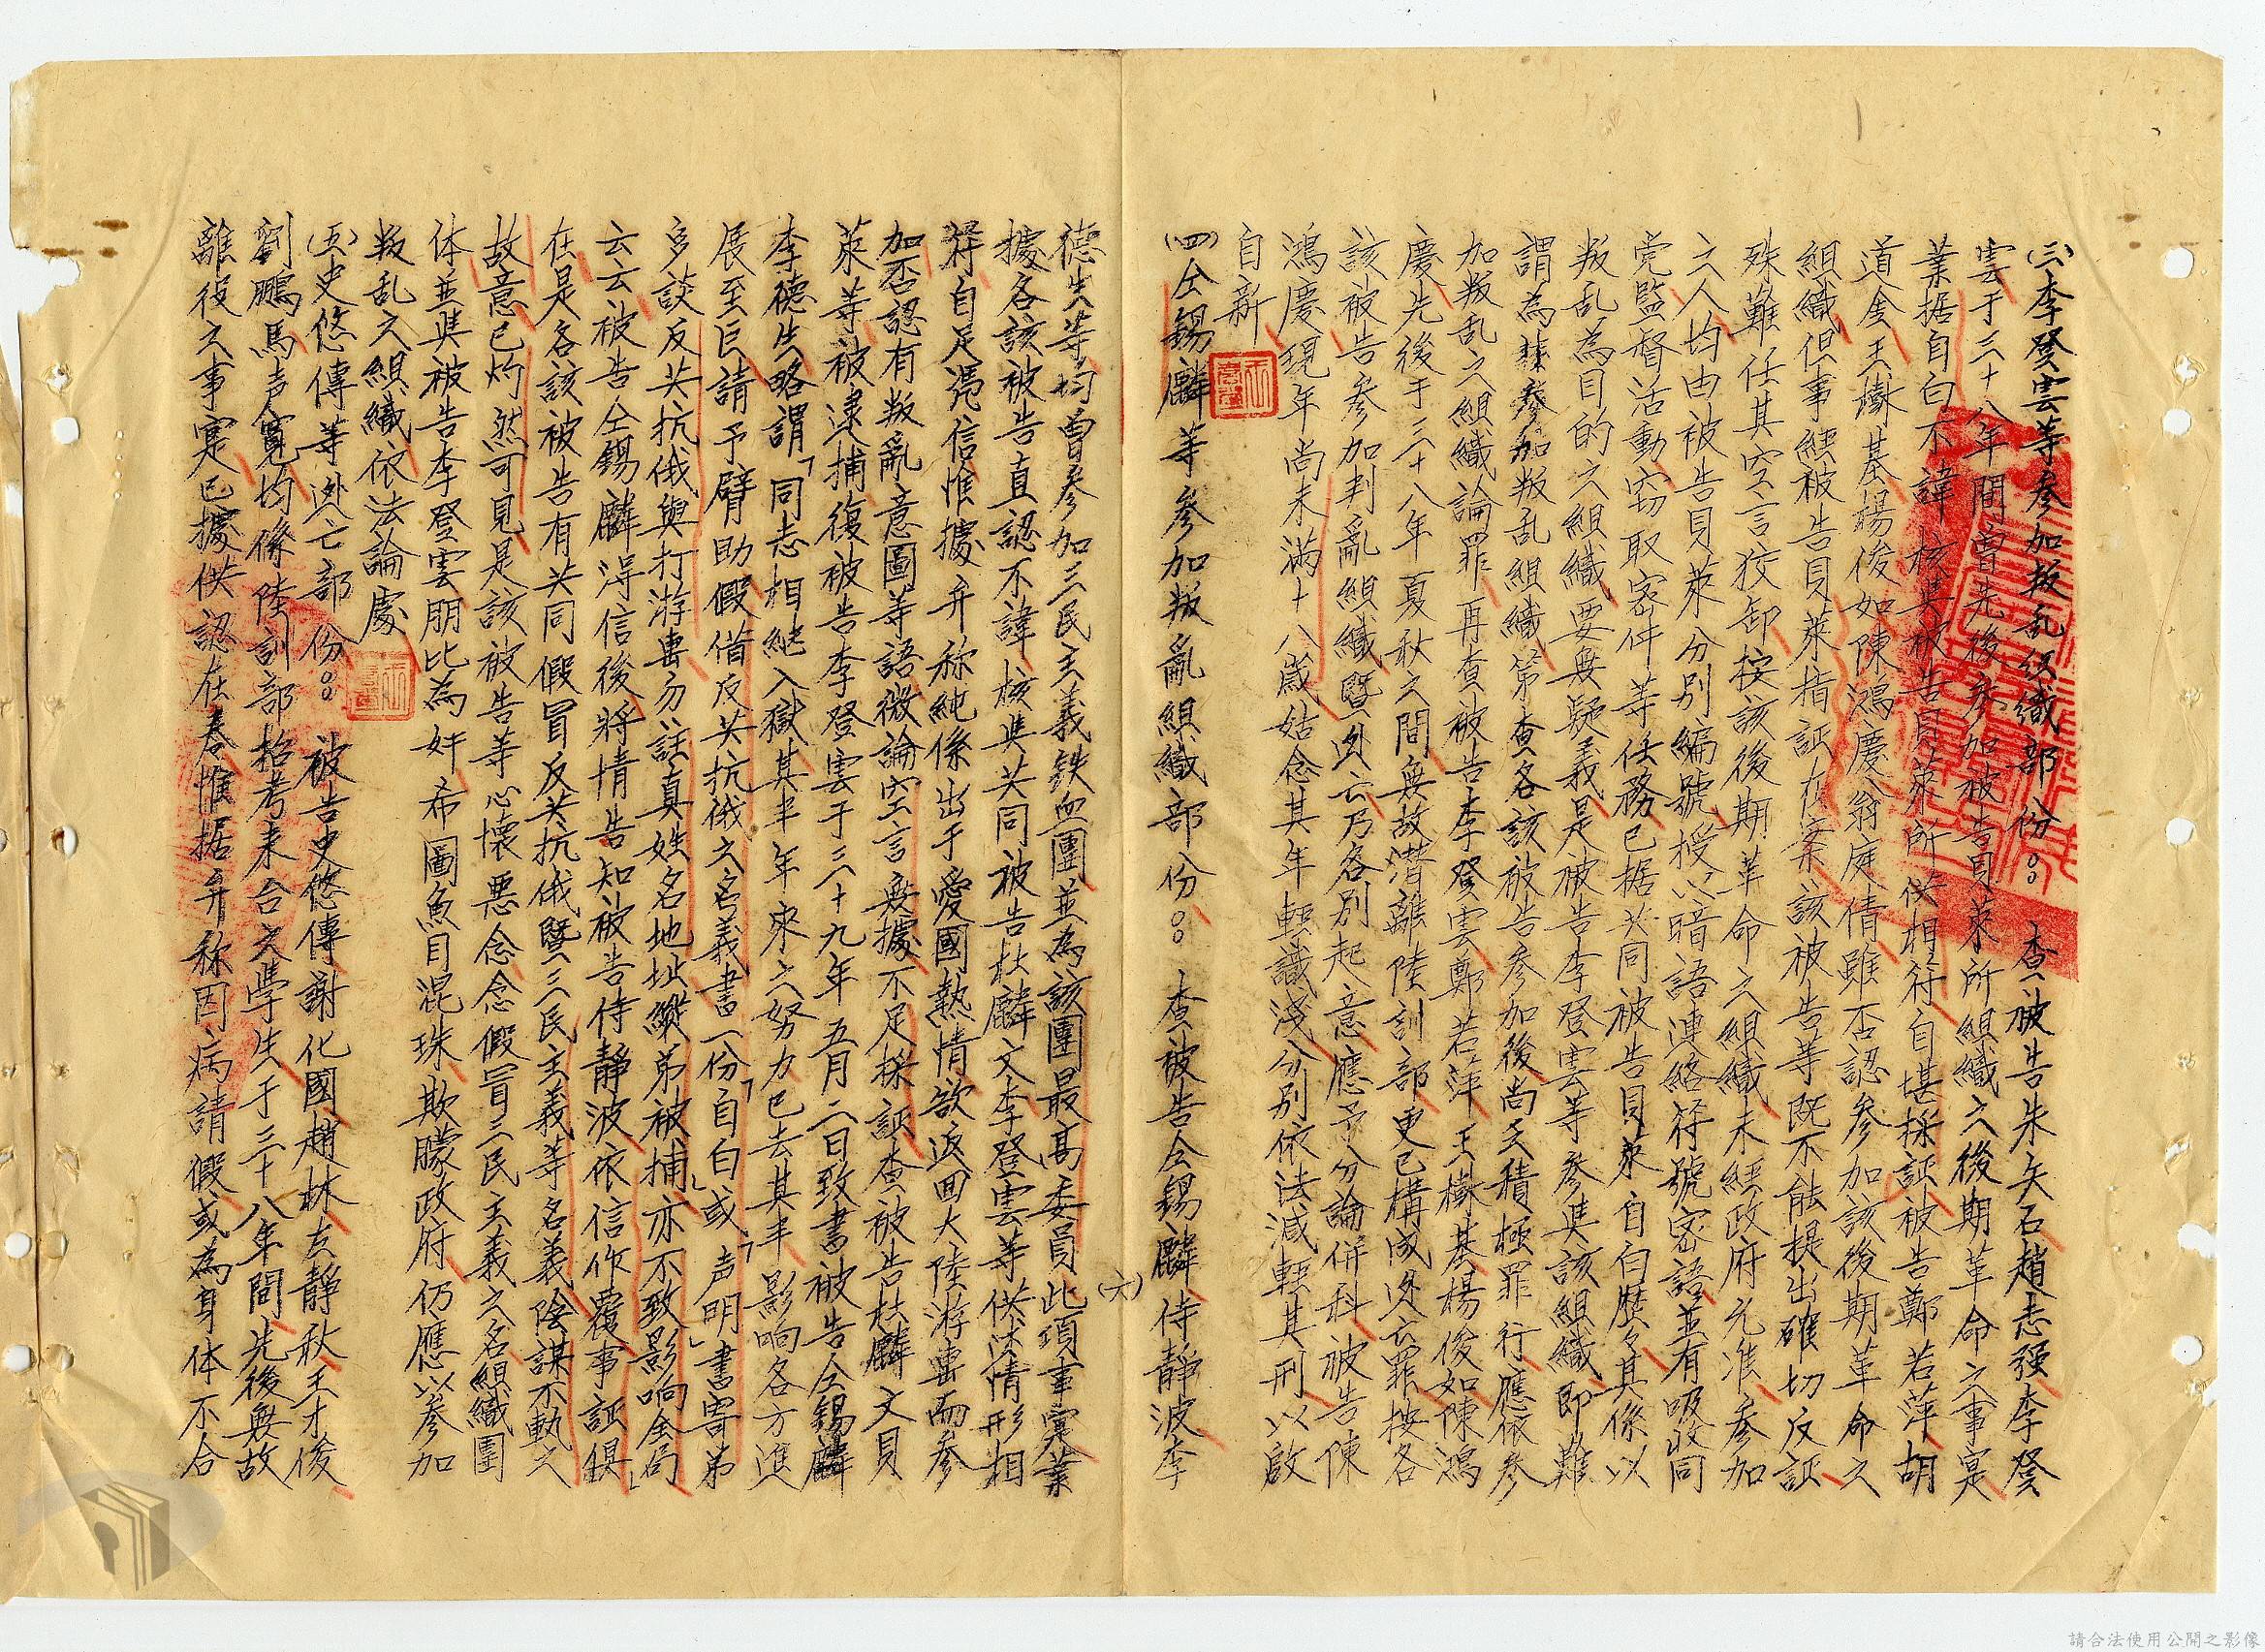 (三)李登雲等參加叛乱组織部份:: 查被告朱矢石趙志强李登
雲于三十八年間曾先後參加被告貝萊所組織之後期革命之事寔
業据自白不諱核與被告貝萊所供相符自堪採証被告鄭若萍胡
道全王樹基楊俊如陳鴻慶翁庭倩雖否認參加該後期革命之
組織但事經被告貝萊指証在案該被告等既不能提出確切反証
殊難任其空言狡卸按該後期革命之組織未經政府允准參加
之人均由被告貝萊分別編號授以暗語連絡符號密語並有吸收同
党監督活動窃取密件等任務已据共同被告貝萊自白歷々其係以
叛乱為目的之組織要無疑義是被告李登雲等參與該組織即難
謂為參加叛乱組織第查各該被告參加後尚乏積極罪行應依參
加叛乱之組織論罪再查被告李登雲鄭若萍王樹基楊俊如陳鴻
慶先後于三十八年夏秋之間無故潜離陸訓部更已構成逃亡罪按各
該被告參加判亂組織暨逃亡乃各別起意應予分論併科被告陳
鴻慶現年尚未滿十八歲姑念其年輕識淺分別依法減輕其刑以啟
自新
(四)仝錫麟等參加叛亂組織部份:: 查被告仝錫麟侍靜波李
(六)
德生等均曾參加三民主義鉄血團並為該團最高委員此項事寔業
據各該被告直認不諱核與共同被告杜麟文李登雲等供述情形相
符自足凴信惟據弁称純係出于愛國熱情欲返回大陸游击而參
加否認有叛亂意圖等語微論空言無據不足採証查被告杜麟文貝
萊等被逮捕後被告李登雲于三十九年五月二日致書被告仝錫麟
李德生略謂「同志相継入獄其半年來之努力已去其半影响各方進
展至巨請予臂助假借反共抗俄之名義書一份「自白」或「声明」書寄弟
多談反共抗俄與打游击勿註真姓名地址縱弟被捕亦不致影响全局」
云云被告仝錫麟淂信後將情告知被告侍靜波依信作覆事証俱
在是各該被告有共同假冒反共抗俄暨三民主義等名義陰謀不軌之
故意已灼然可見是該被告等心懷悪念念假冒三民主義之名組織團
体並與被告李登雲朋比為奸希圖魚目混珠欺朦政府仍應以參加
叛乱之組織依法論處
(五)史悠傳等逃亡部份:: 被告史悠傳謝化國趙林左靜秋王才俊
劉鵬馬声寬均係陸訓部招考来台之學生于三十八年間先後無故
離役之事寔已據供認在卷惟据弁称因病請假或為身体不合
請合法使用公開之影像